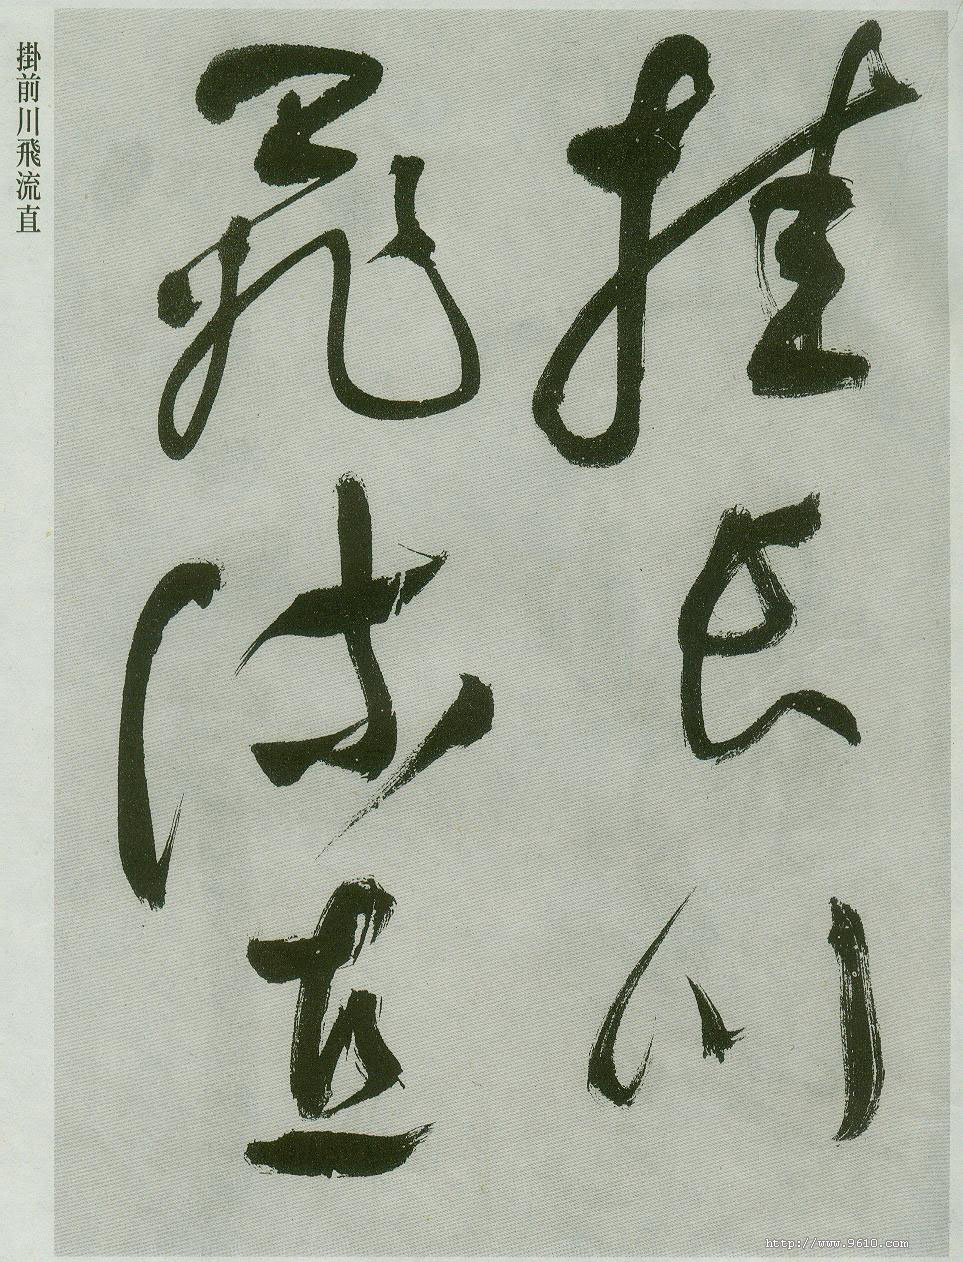 掛前川飛流直
挂長川
飛流直
http://www.9610.com